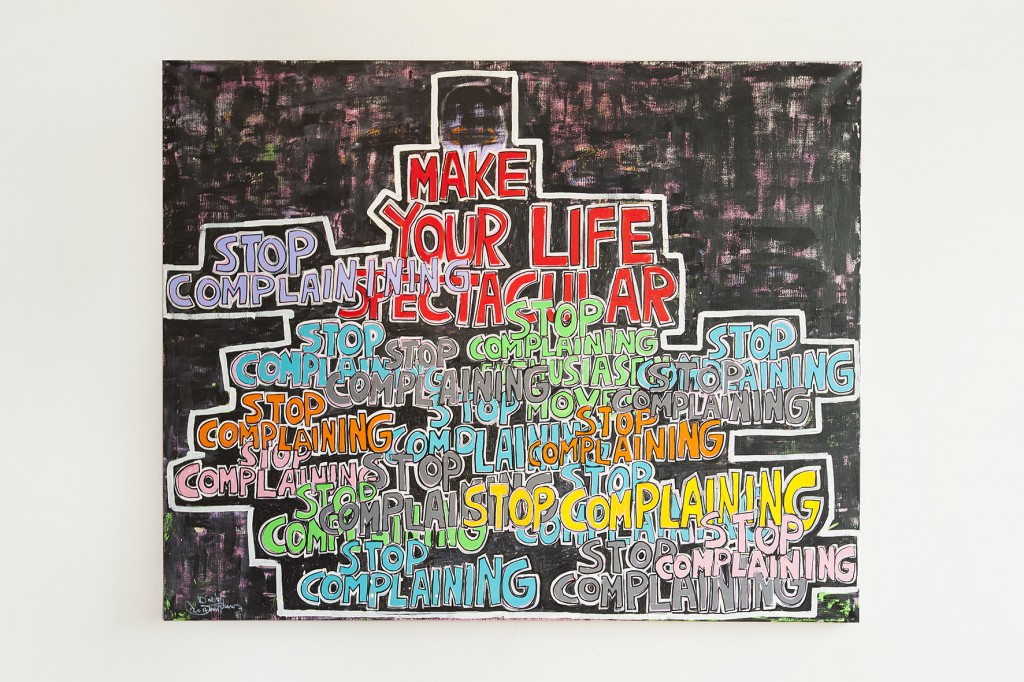 MAKE
YOUR LIFE
SPECTACULAR
STOP
COMPLAINING
STOP
COMPLAINING
STOP
COMPLAINING
STOP
COMPLAINING
STOP
COMPLAINING
STOP
COMPLAINING
STOP
COMPLAINING
STOP
COMPLAINING
STOP
COMPLAINING
STOP
COMPLAINING
STOP
COMPLAINING
STOP
COMPLAINING
STOP COMPLAINING
STOP
STOP
COMPLAINING
STOP
COMPLAINING
STOP
COMPLAINING
STOP
COMPLAINING